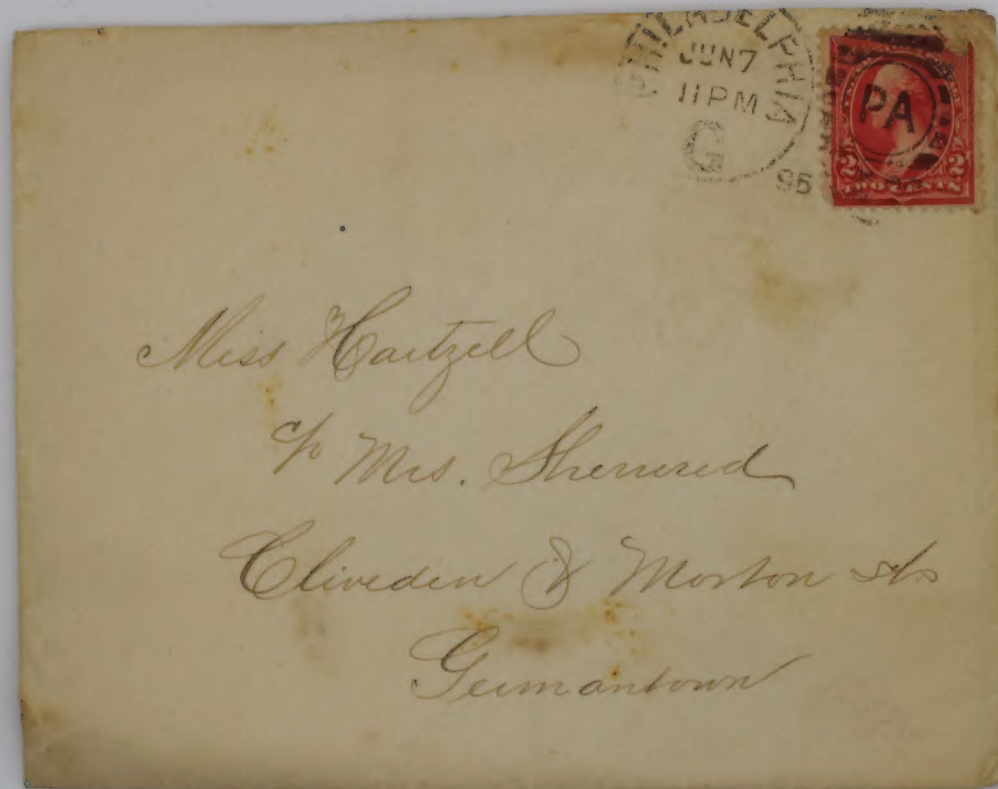 PHILADELPHIA
JUN 7
11 PM
G
95
PA
2 2
TWO CENTS
Miss Hartzell
c/o Mrs. Sherrerd
Cliveden & Morton sts
Germantown